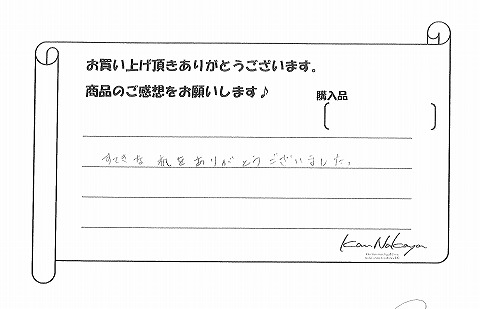 お買い上げ頂きありがとうございます。
商品のご感想をお願いします♪
購入品
すてきな 机をありがとうございました。
Kan Nakaya